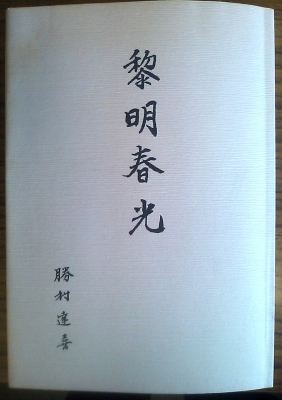 黎明春光
勝村達喜